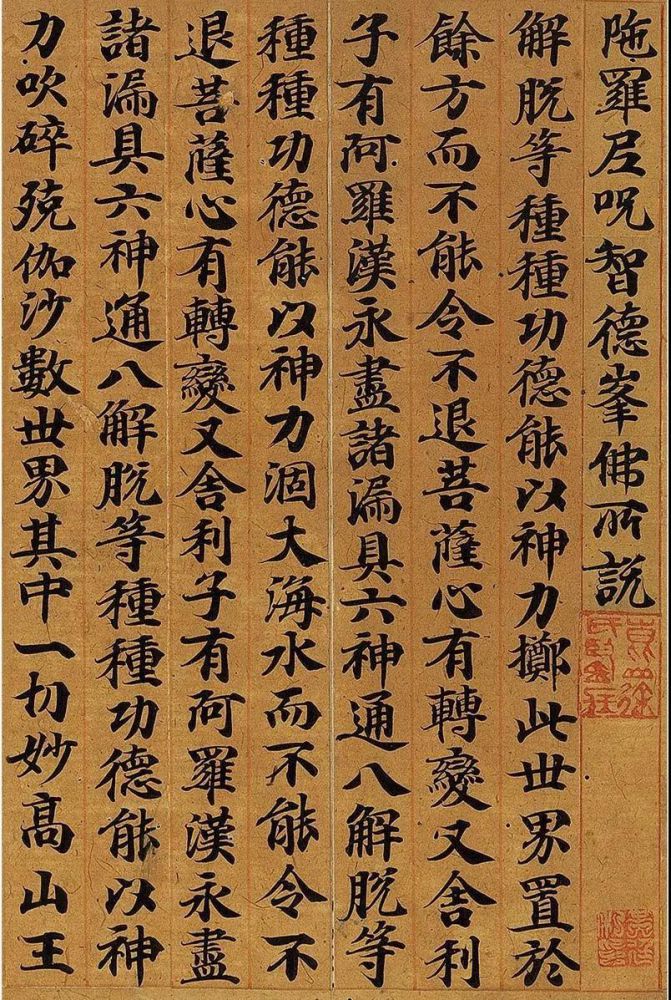 陁羅尼呪智德峯佛所説
解脱等種種功德能以神力擲此世界置於
餘方而不能令不退菩薩心有轉變又舍利
子有阿羅漢永盡諸漏具六神通八解脱等
種種功德能以神力涸大海水而不能令不
退菩薩心有轉變又舍利子有阿羅漢永盡
諸漏具六神通八解脱等種種功德能以神
力吹碎殑伽沙數世界其中一切妙高山王